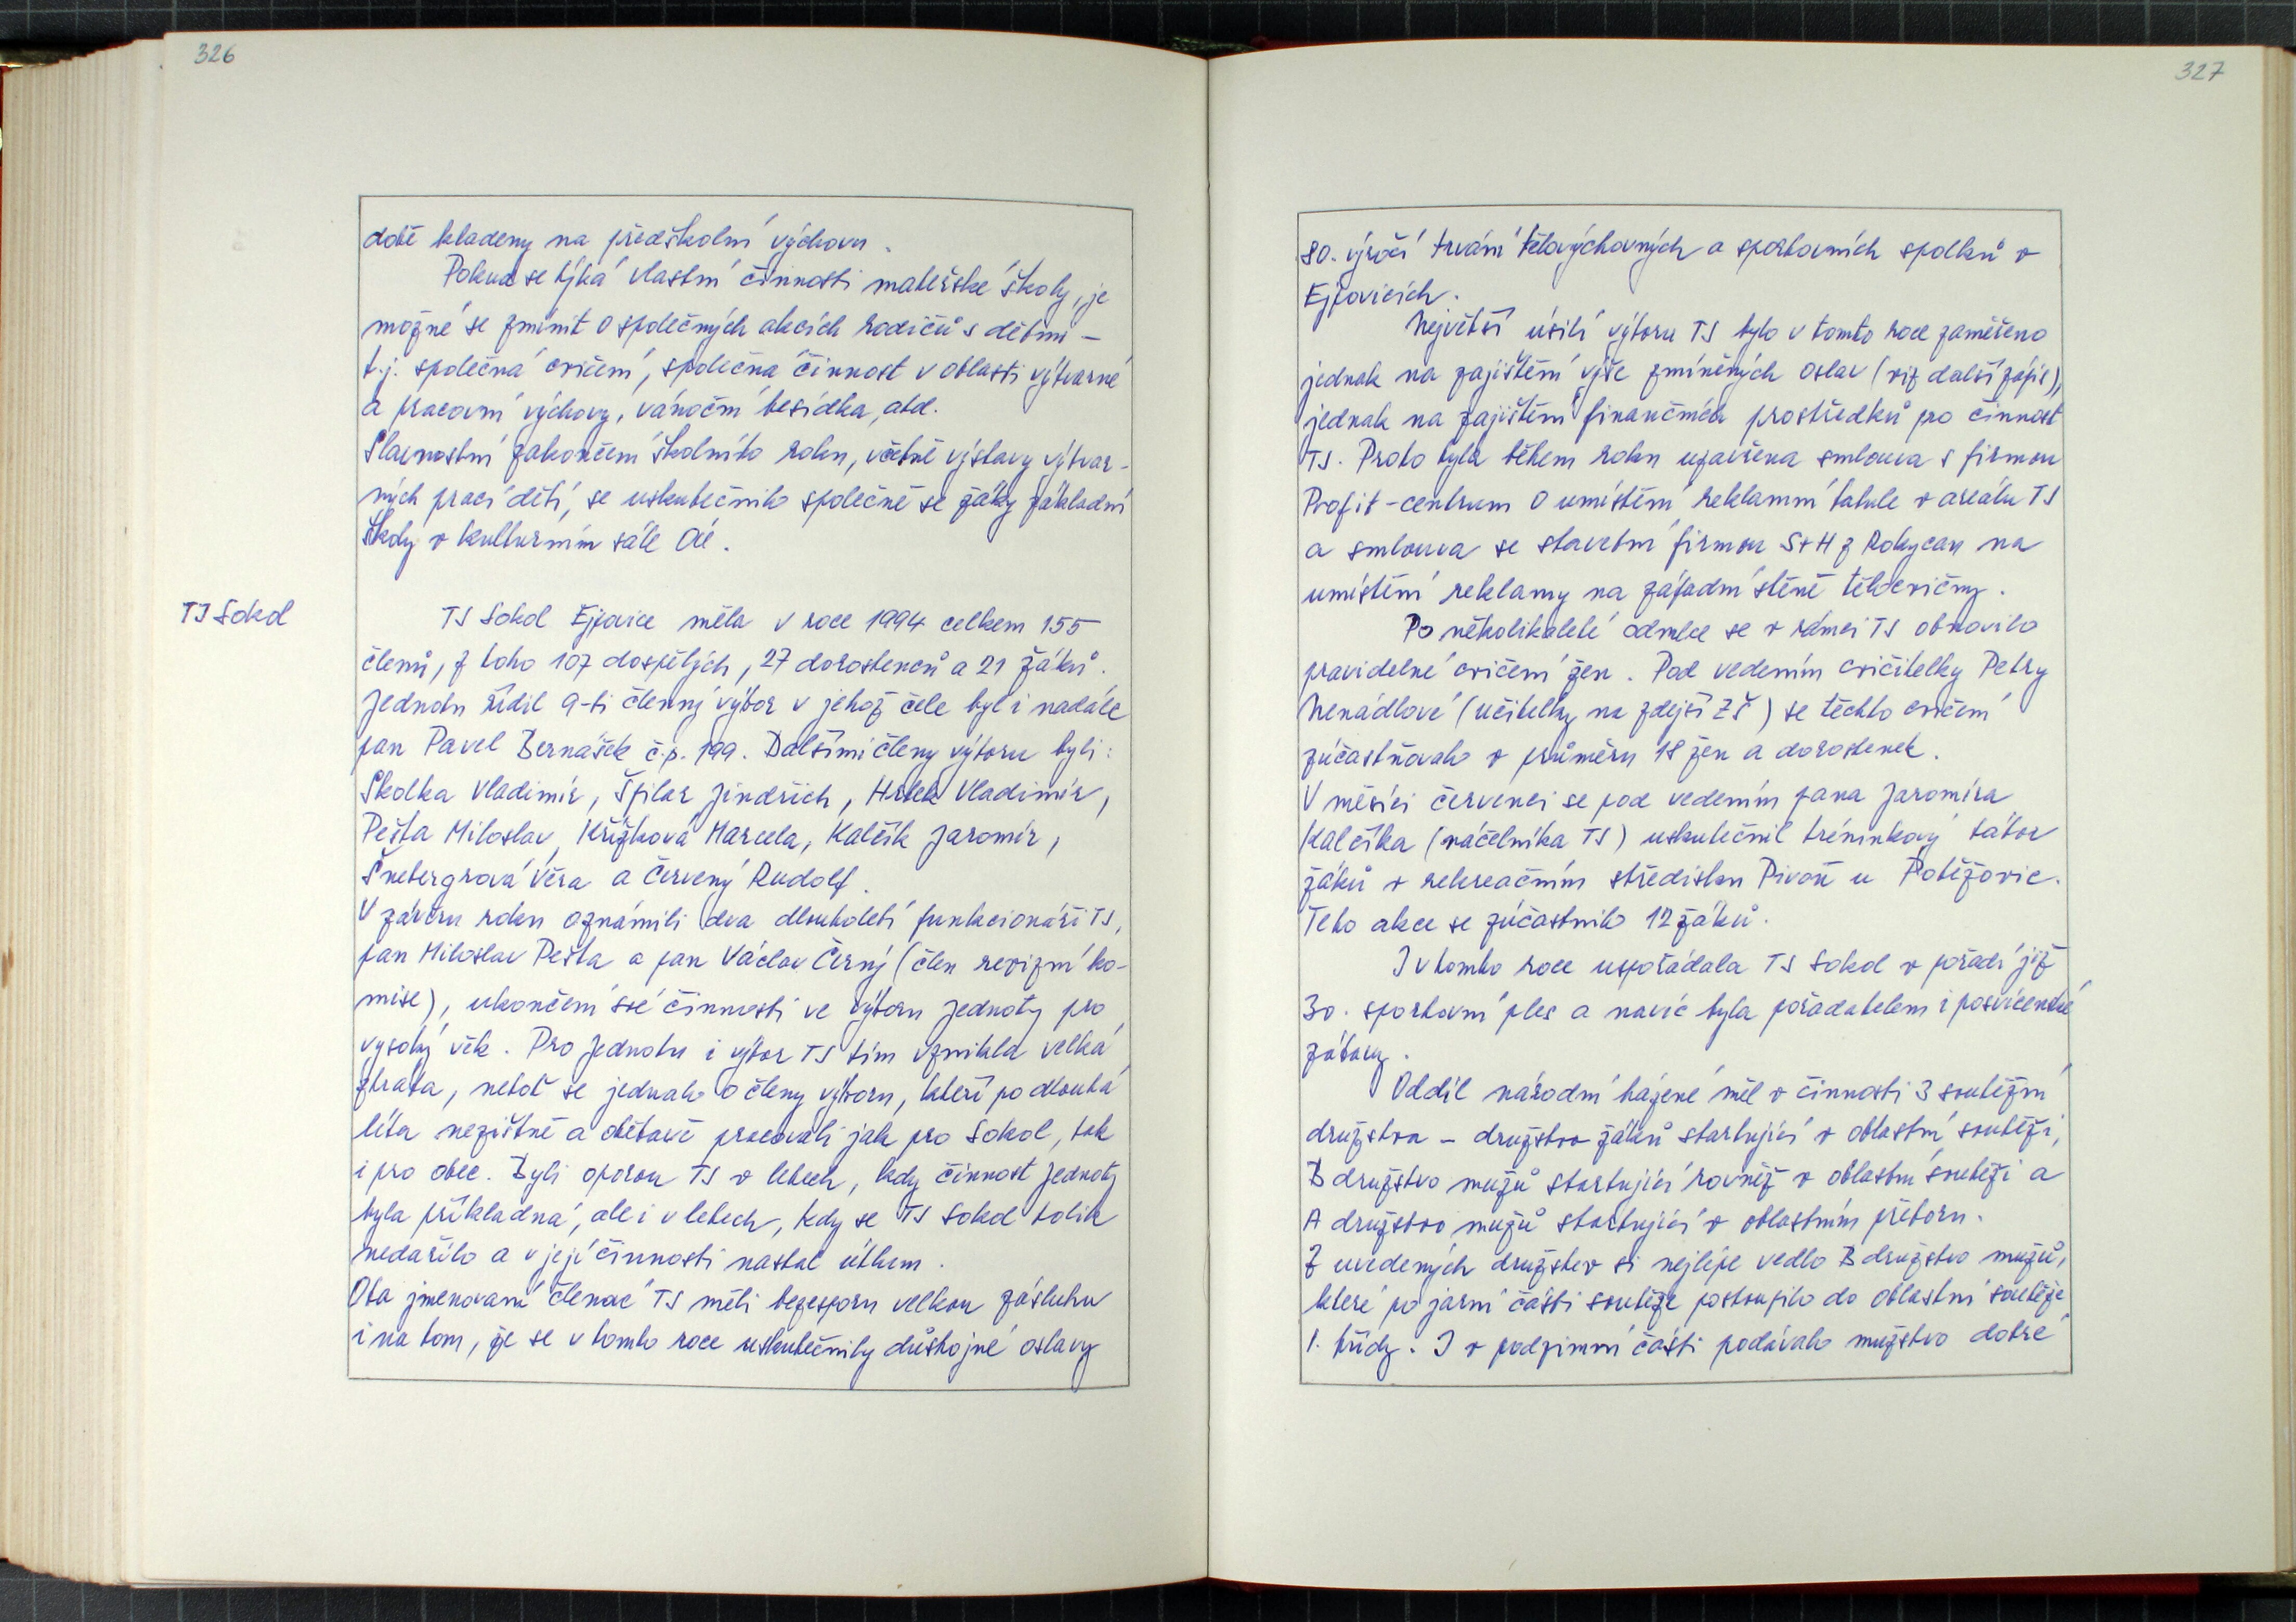 326
době kladeny na předškolní výchovu.
Pokud se týká vlastní činnosti mateřské školy, je
možné se zmínit o společných akcích rodičů s dětmi –
t.j. společná cvičení, společná činnost v oblasti výtvarné
a pracovní výchovy, vánoční besídka, atd.
Slavnostní zakončení školního roku, včetně výstavy výtvar-
ných prací dětí, se uskutečnilo společně se žáky základní
školy v kulturním sále OÚ.
TJ Sokol
TJ Sokol Ejpovice měla v roce 1994 celkem 155
členů, z toho 107 dospělých, 27 dorostenců a 21 žáků.
Jednotu řídil 9-ti členný výbor v jehož čele byl i nadále
pan Pavel Bernášek č.p. 199. Dalšími členy výboru byli:
Skolka Vladimír, Špilar Jindřich, Hrbek Vladimír,
Pešta Miloslav, Křížková Marcela, Kalčík Jaromír,
Šnebergrová Věra a Červený Rudolf.
V závěru roku oznámili dva dlouholetí funkcionáři TJ,
pan Miloslav Pešta a pan Václav Černý (člen revizní ko-
mise), ukončení své činnosti ve výboru jednoty pro
vysoký věk. Pro jednotu i výbor TJ tím vznikla velká
ztráta, neboť se jednalo o členy výboru, kteří po dlouhá
léta nezištně a obětavě pracovali jak pro Sokol, tak
i pro obec. Byli oporou TJ v letech, kdy činnost jednoty
byla příkladná, ale i v letech, kdy se TJ Sokol tolik
nedařilo a v její činnosti nastal útlum.
Oba jmenovaní členové TJ měli bezesporu velkou zásluhu
i na tom, že se v tomto roce uskutečnily důstojné oslavy
327
80. výročí trvání tělovýchovných a sportovních spolků v
Ejpovicích.
Největší úsilí výboru TJ bylo v tomto roce zaměřeno
jednak na zajištění výše zmíněných oslav (viz další zápis),
jednak na zajištění finančních prostředků pro činnost
TJ. Proto byla během roku uzavřena smlouva s firmou
Profit-centrum o umístění reklamní tabule v areálu TJ
a smlouva se stavební firmou S+H z Rokycan na
umístění reklamy na západní stěně tělocvičny.
Po několikaleté odmlce se v rámci TJ obnovilo
pravidelné cvičení žen. Pod vedením cvičitelky Petry
Nenádlové (učitelky na zdejší ZŠ) se těchto cvičení
zúčastňovalo v průměru 18 žen a dorostenek.
V měsíci červenci se pod vedením pana Jaromíra
Kalčíka (náčelníka TJ) uskutečnil tréninkový tábor
žáků v rekreačním středisku Pivoň u Poběžovic.
Této akce se zúčastnilo 12 žáků.
I v tomto roce uspořádala TJ Sokol v pořadí již
30. sportovní ples a navíc byla pořadatelem i posvícenské
zábavy.
Oddíl národní házené měl v činnosti 3 soutěžní
družstva – družstvo žáků startující v oblastní soutěži,
B družstvo mužů startující rovněž v oblastní soutěži a
A družstvo mužů startující v oblastním přeboru.
Z uvedených družstev si nejlépe vedlo B družstvo mužů,
které po jarní části soutěže postoupilo do oblastní soutěže
1. třídy. I v podzimní části podávalo mužstvo dobré